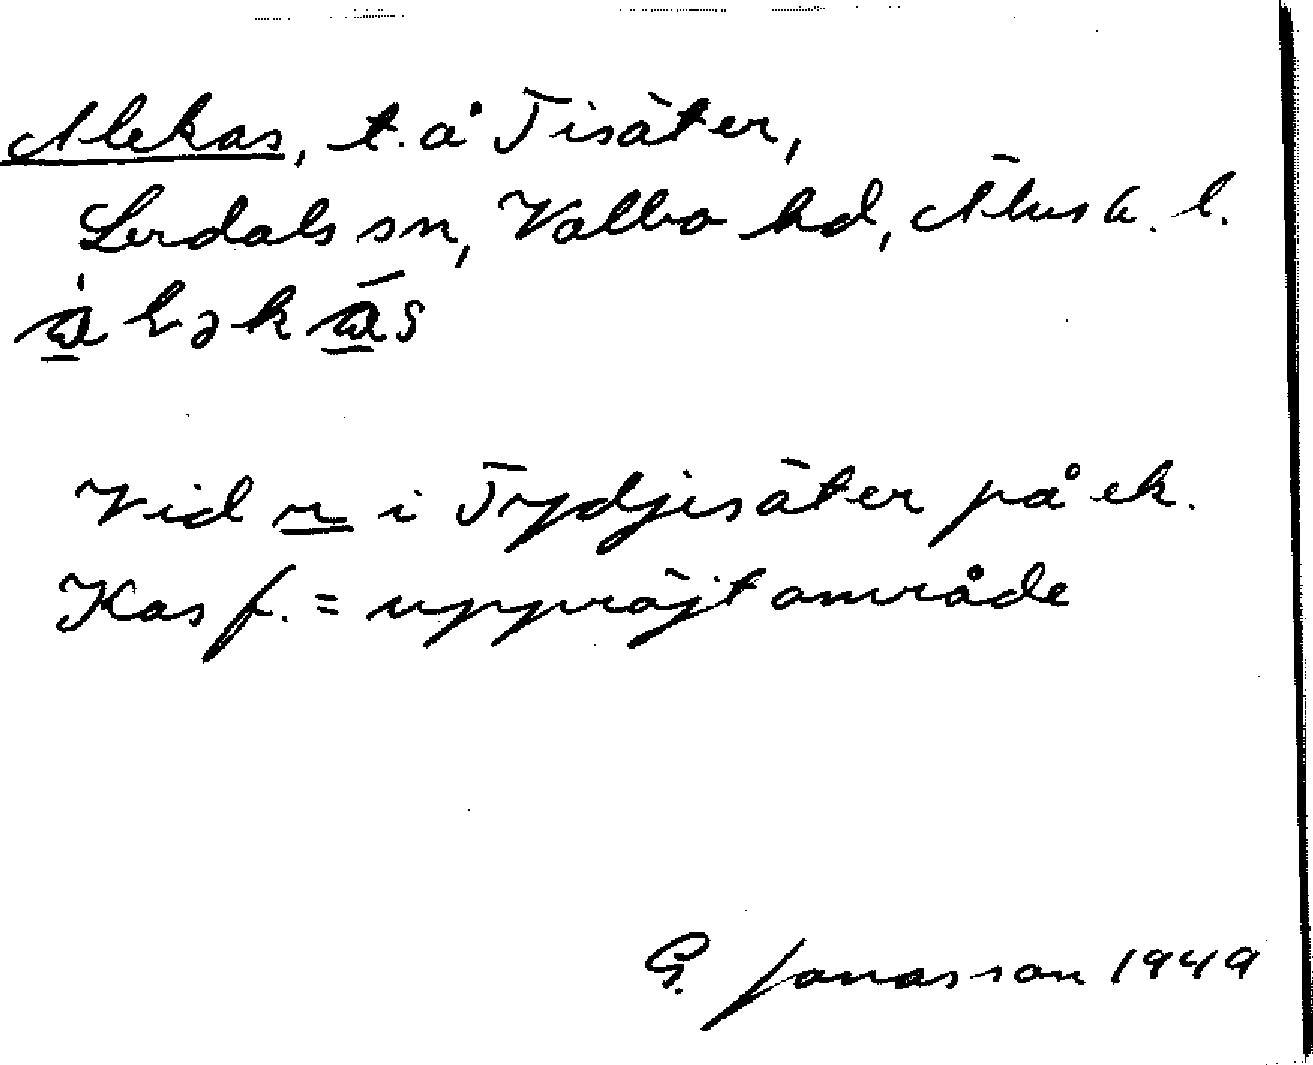 Alekas, t. å Tisäter,
Lerdals sn, Valbo hd, Älvsb. l.
Vid r i Tydjesäter på ek.
Kas f. = uppröjt område
G. Jonasson 1949